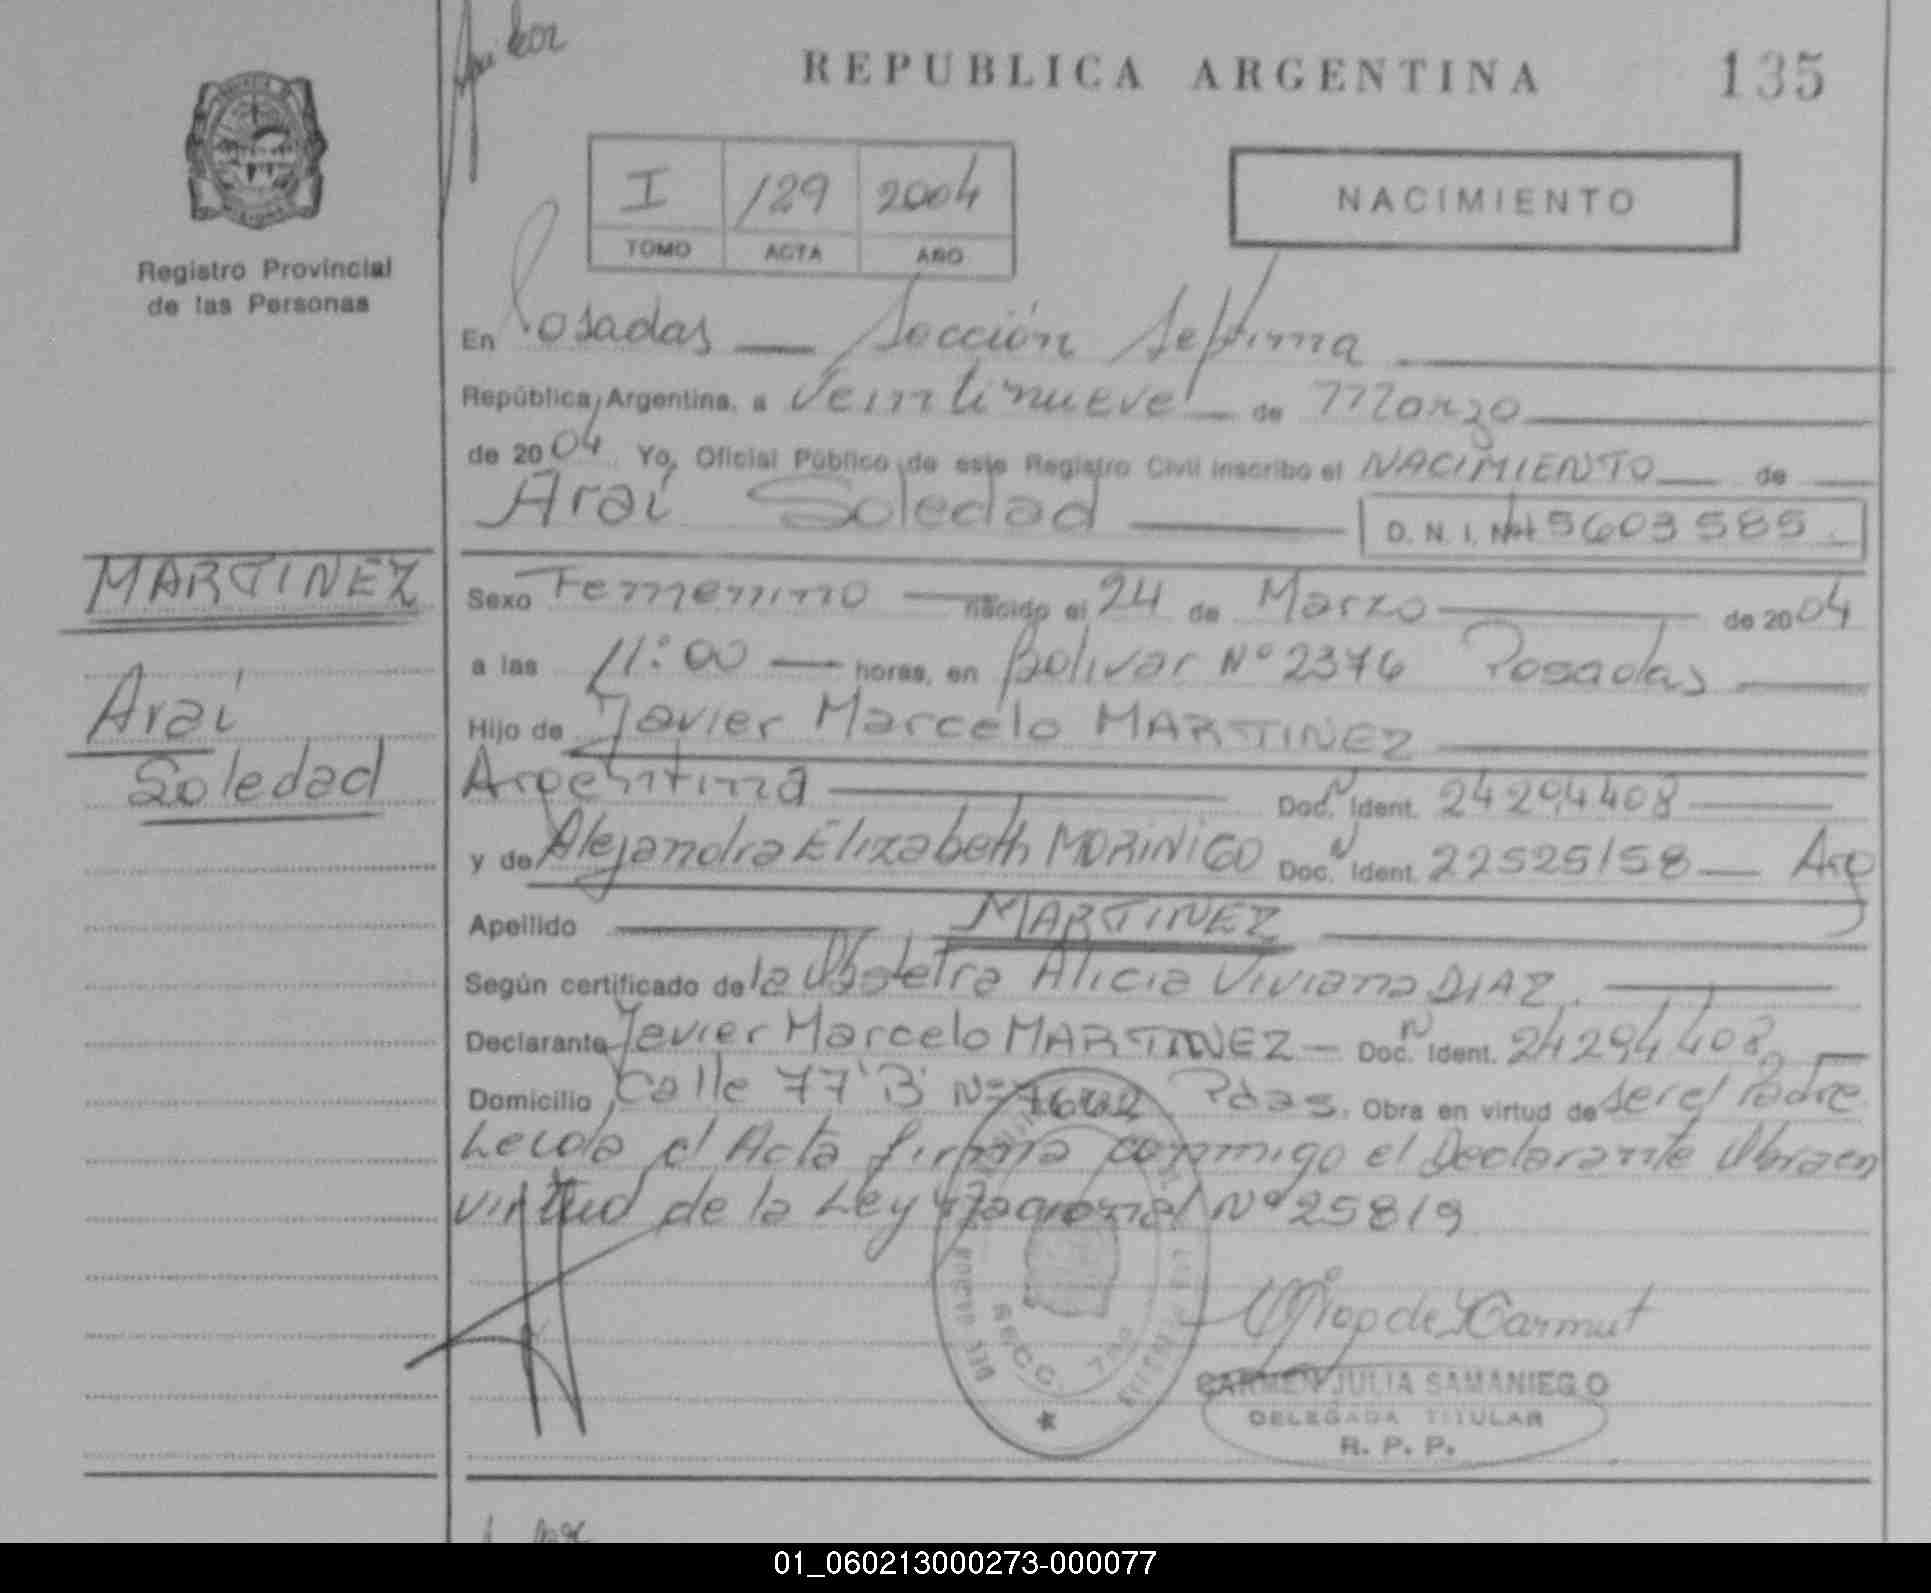 REPUBLICA ARGENTINA
135
I
129
2004
TOMO
ACTA
AÑO
NACIMIENTO
Registro Provincial
de las Personas
En Posadas — Sección Septima
República Argentina, a Veintinueve — de Marzo
de 2004 Yo, Oficial Público de este Registro Civil inscribo el NACIMIENTO — de
Arai Soledad
D. N. I. 45603585
MARTINEZ
Arai
Soledad
Sexo Femenino — nacido el 24 de Marzo — de 2004
a las 11:00 — horas, en Bolivar Nº 2376 Posadas —
Hijo de Javier Marcelo MARTINEZ
Argentina — Doc. Ident. 24294408 —
y de Alejandra Elizabeth MORINIGO Doc. Ident. 22525158 — Arg
Apellido — MARTINEZ —
Según certificado de la Obstetra Alicia Viviana DIAZ. —
Declarante Javier Marcelo MARTINEZ — Doc. Ident. 24294408 —
Domicilio Calle 77 "B" Nº Pdas. Obra en virtud de ser el Padre
Leida el Acta firma conmigo el Declarante Obra en
virtud de la Ley Nacional Nº 25819
R.C.C.
CARMEN JULIA SAMANIEGO
DELEGADA TITULAR
R. P. P.
01_060213000273-000077